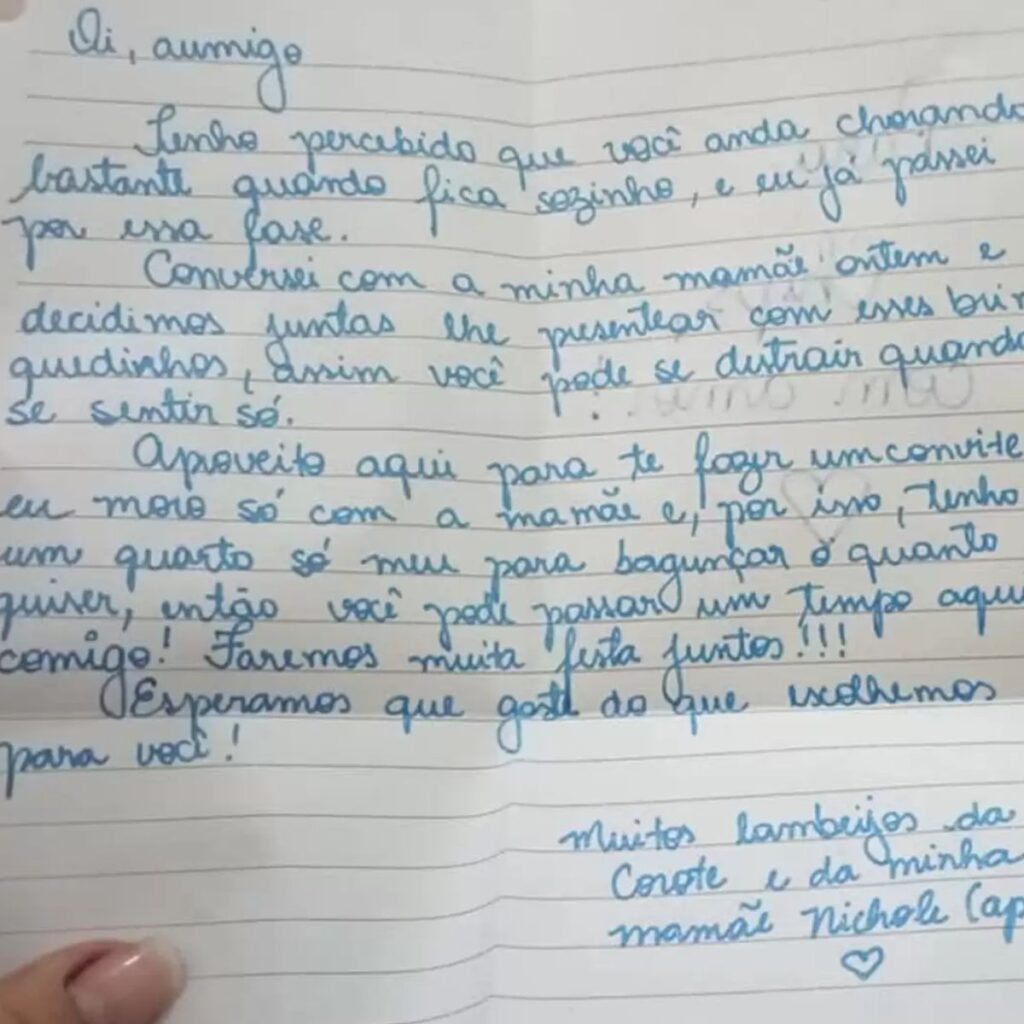 Oi, aumigo
Tenho percebido que você anda chorando
bastante quando fica sozinho, e eu já passei
por essa fase.
Conversei com a minha mamãe ontem e
decidimos juntas lhe presentear com esses brin
quedinhos, assim você pode se distrair quando
se sentir só.
Aproveito aqui para te fazer um convite
eu moro só com a mamãe e, por isso, tenho
um quarto só meu para bagunçar o quanto
quiser, então você pode passar um tempo aqui
comigo! Faremos muita festa juntos!!!
Esperamos que goste do que escolhemos
para você!
Muitos lambeijos da
Corote e da minha
mamãe Nichole (ap